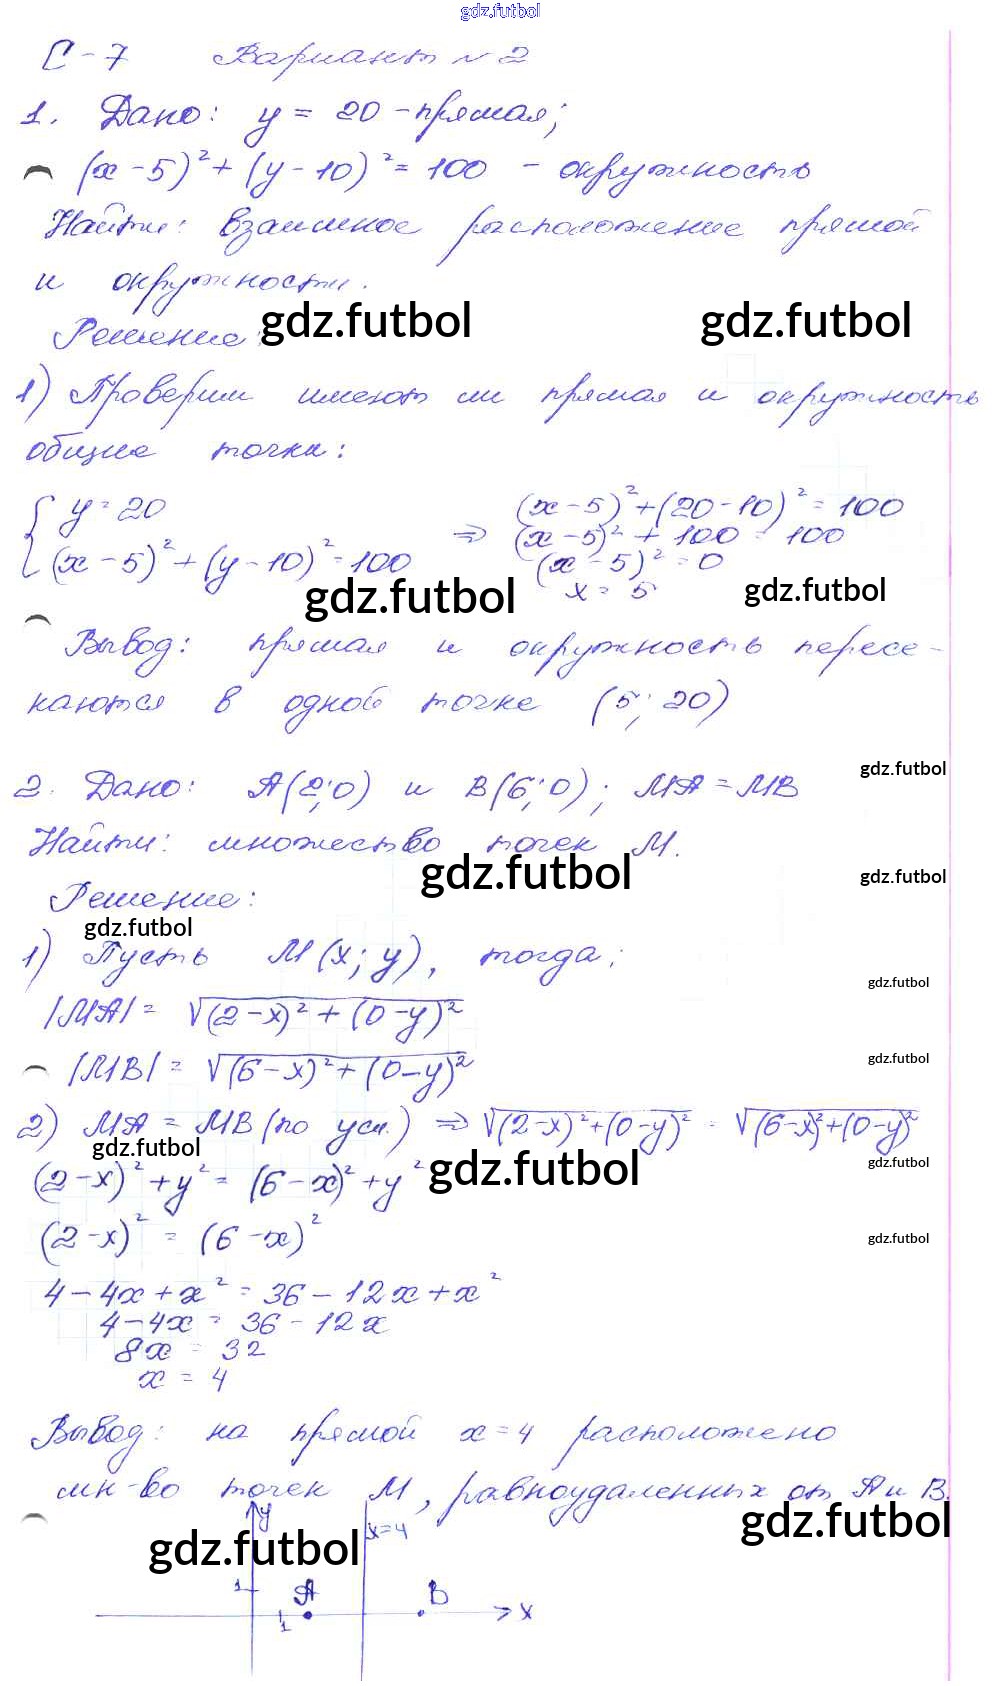 gdz.futbol
С-7 Вариант №2
1. Дано: y = 20 - прямая;
(x-5)² + (y-10)² = 100 - окружность
Найти: взаимное расположение прямой
и окружности.
Решение: gdz.futbol gdz.futbol
1) Проверим имеют ли прямая и окружность
общие точки:
{ y = 20
(x-5)² + (y-10)² = 100 ⇒ (x-5)² + (20-10)² = 100
(x-5)² + 100 = 100
(x-5)² = 0
x = 5
gdz.futbol gdz.futbol
Вывод: прямая и окружность пересе-
каются в одной точке (5; 20)
gdz.futbol
2. Дано: A(2;0) и B(6;0); MA = MB
Найти: множество точек M.
gdz.futbol gdz.futbol
Решение:
gdz.futbol
1) Пусть M(x; y), тогда:
gdz.futbol
|MA| = √(2-x)² + (0-y)²
gdz.futbol
|MB| = √(6-x)² + (0-y)²
2) MA = MB (по усл.) ⇒ √(2-x)² + (0-y)² = √(6-x)² + (0-y)²
gdz.futbol gdz.futbol gdz.futbol
(2-x)² + y² = (6-x)² + y²
(2-x)² = (6-x)²
gdz.futbol
4 - 4x + x² = 36 - 12x + x²
4 - 4x = 36 - 12x
8x = 32
x = 4
Вывод: на прямой x = 4 расположено
мн-во точек M, равноудаленных от A и B.
gdz.futbol gdz.futbol
y
x=4
1 A B
1 x